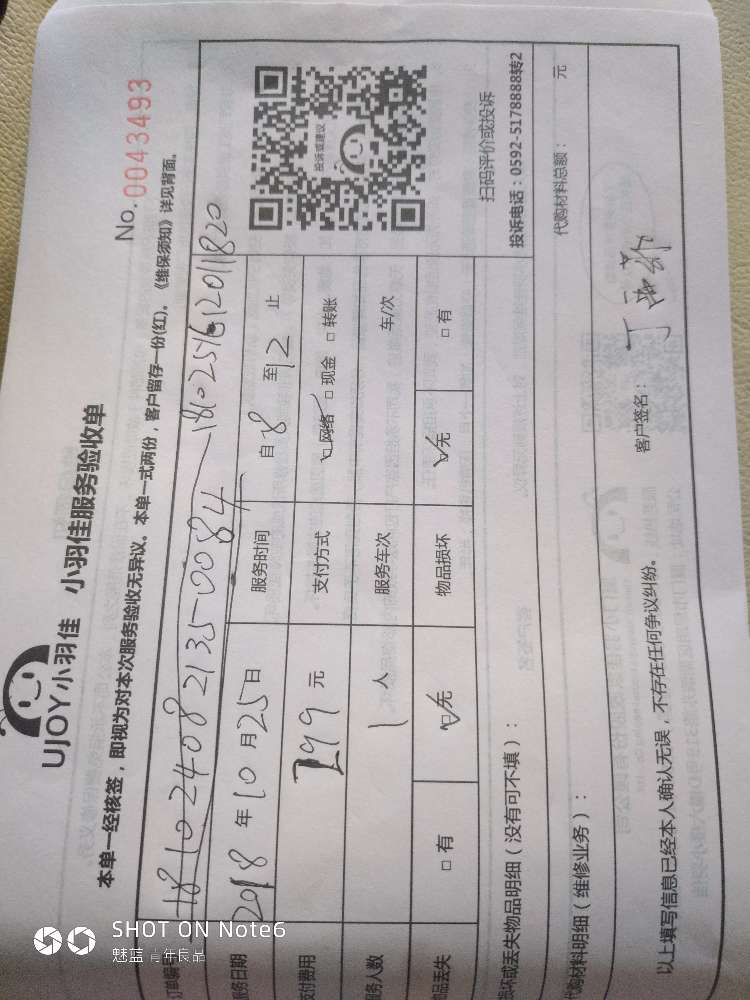 UJOY小羽佳 小羽佳服务验收单
No. 0043493
本单一经核签，即视为对本次服务验收无异议。本单一式两份，客户留存一份(红)。《维保须知》详见背面。
订单编号 1810240821350084 181025161201820
服务日期 2018年10月25日 服务时间 自8至12止
支付费用 199元 支付方式 网络 □现金 □转账
服务人数 1人 服务车次 车/次
物品丢失 □有 无 物品损坏 无 □有
投诉或建议
扫码评价或投诉
投诉电话：0592-5178888转2
损坏或丢失物品明细（没有可不填）：
代购材料明细（维修业务）： 代购材料总额： 元
以上填写信息已经本人确认无误，不存在任何争议纠纷。 客户签名：
SHOT ON Note6
魅蓝 青年良品